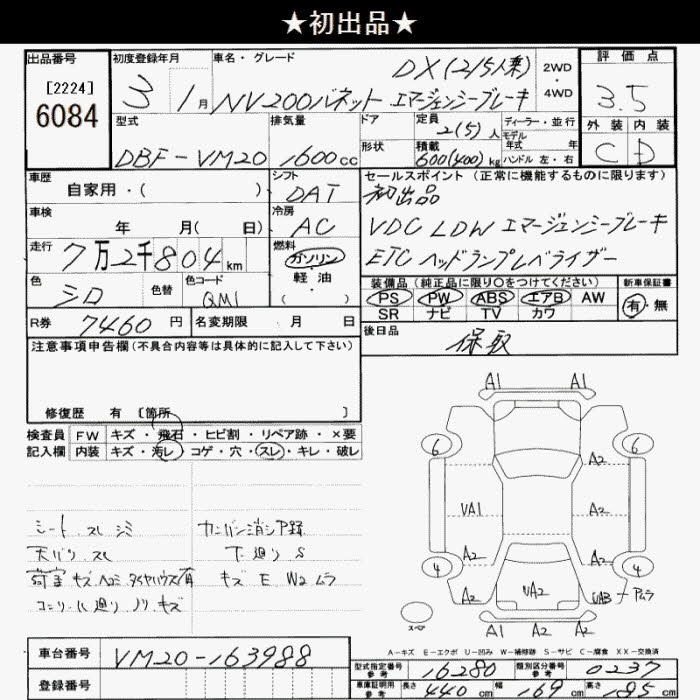 ★初出品★
出品番号
[2224]
6084
初度登録年月
3 1月
車名・グレード
DX(2/5人乗)
NV200バネット エマージェンシーブレーキ
2WD
・
4WD
評価点
3.5
外装 内装
C D
型式
DBF-VM20
排気量
1600cc
ドア
形状
定員
2(5)人
積載
600(400)kg
ディーラー・並行
モデル
年式 年
ハンドル 左・右
車歴
自家用・( )
シフト
DAT
車検
年 月( 日)
冷房
AC
走行
7万2千804km
燃料
ガソリン
軽油
( )
色
シロ
色替
色コード
QM1
R券
7460円
名変期限 月 日
セールスポイント(正常に機能するものに限ります)
初出品
VDC LDW エマージェンシーブレーキ
ETC ヘッドランプレベライザー
装備品(純正品に限り○をつけてください)
PS PW ABS エアB AW
SR ナビ TV カワ
新車保証書
有・無
後日品
保取
注意事項申告欄(不具合内容等は具体的に記入して下さい)
修復歴 有 [箇所 ]
検査員
記入欄
FW キズ・飛石・ヒビ割・リペア跡・×要
内装 キズ・汚レ・コゲ・穴・スレ・キレ・破レ
シート スレ シミ
天バリ スレ
荷室 キズ ヘコミ タイヤハウス有
コンソール廻り ノリ キズ
カンバン消シア跡
下廻り S
キズ E W2 ムラ
A1 A1
6 6
A2
UA1 A2
A2 A2
4 4
A2 UA2 UA3 → Pムラ
スペア
A1 A2 A2
A-キズ E-エクボ U-凹み W-補修跡 S-サビ C-腐食 XX-交換済
車台番号
VM20-163988
登録番号
型式指定番号
参考
16280
類別区分番号
参考
0237
車庫証明用
参考
長さ 440cm 幅 169cm 高さ 195cm